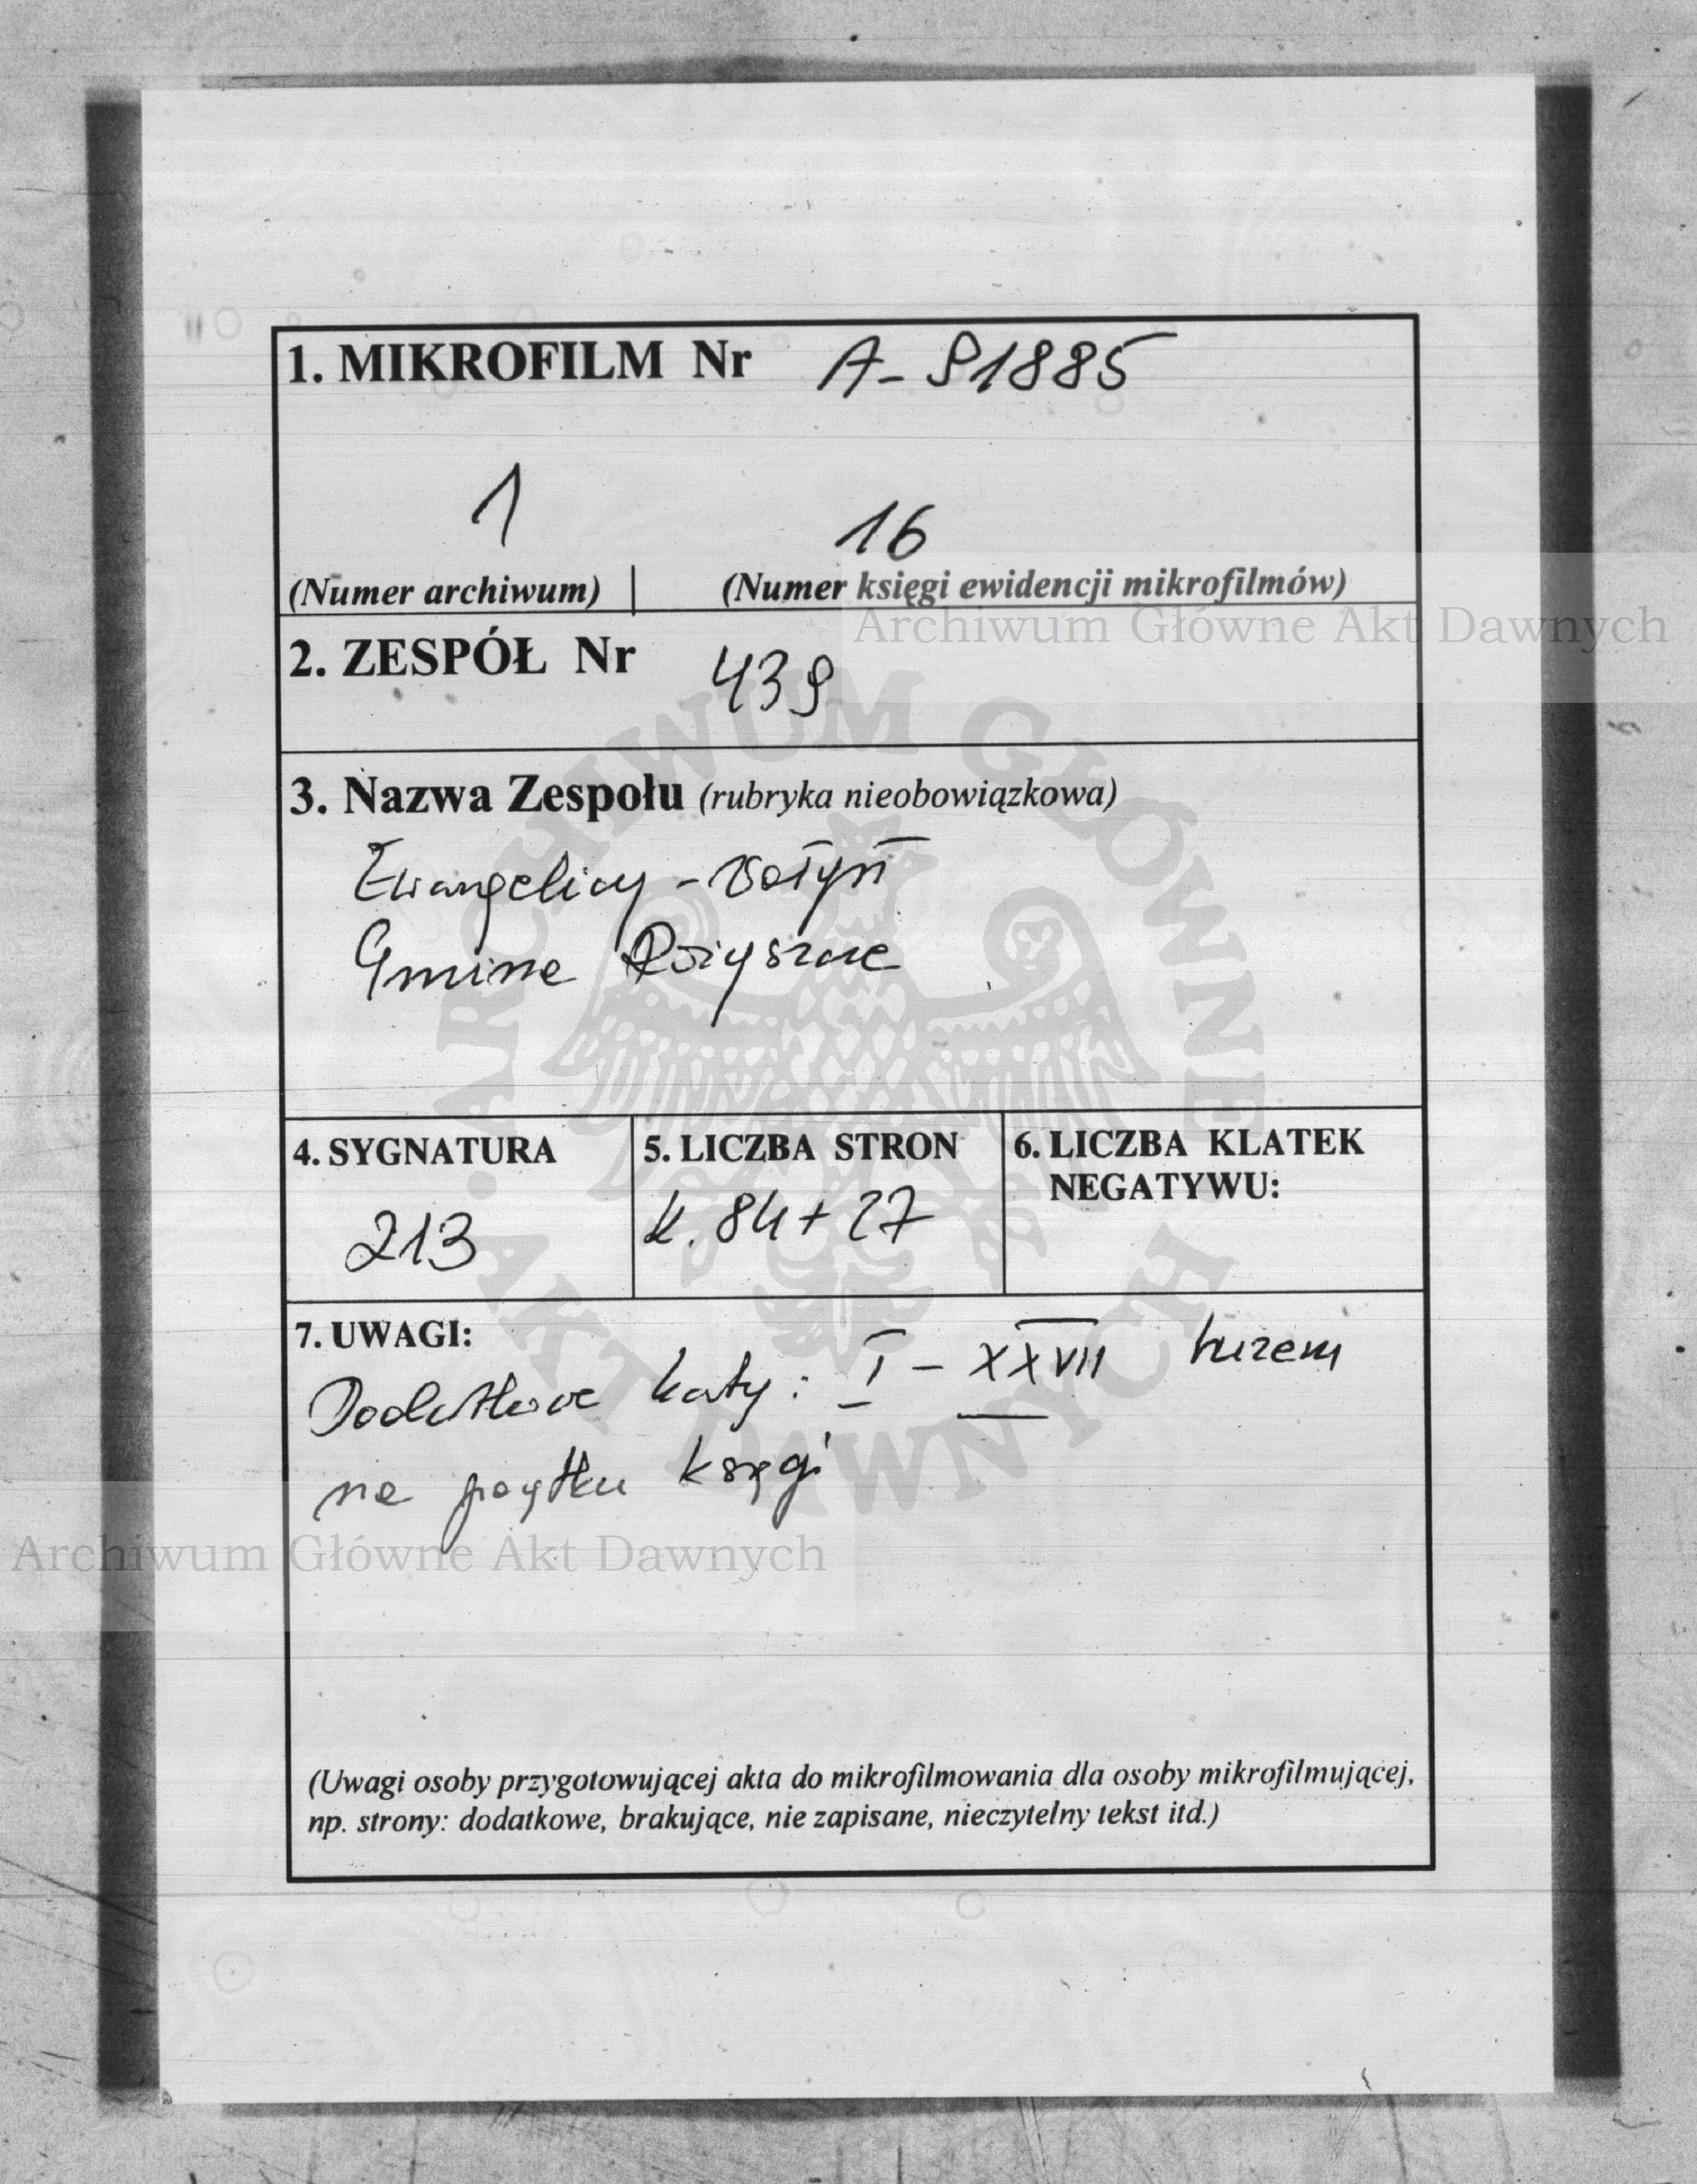 1. MIKROFILM Nr A-91885
1 16
(Numer archiwum) | (Numer księgi ewidencji mikrofilmów)
Archiwum Główne Akt Dawnych
2. ZESPÓŁ Nr 439
3. Nazwa Zespołu (rubryka nieobowiązkowa)
Ewangelicy - Wołyń
Gmina Rożyszcze
4. SYGNATURA 5. LICZBA STRON 6. LICZBA KLATEK
NEGATYWU:
213 k. 84 + 27
7. UWAGI:
Dodatkowe karty: I - XXVII
na początku księgi
Archiwum Główne Akt Dawnych
(Uwagi osoby przygotowującej akta do mikrofilmowania dla osoby mikrofilmującej,
np. strony: dodatkowe, brakujące, nie zapisane, nieczytelny tekst itd.)
ARCHIWUM GŁÓWNE AKT DAWNYCH